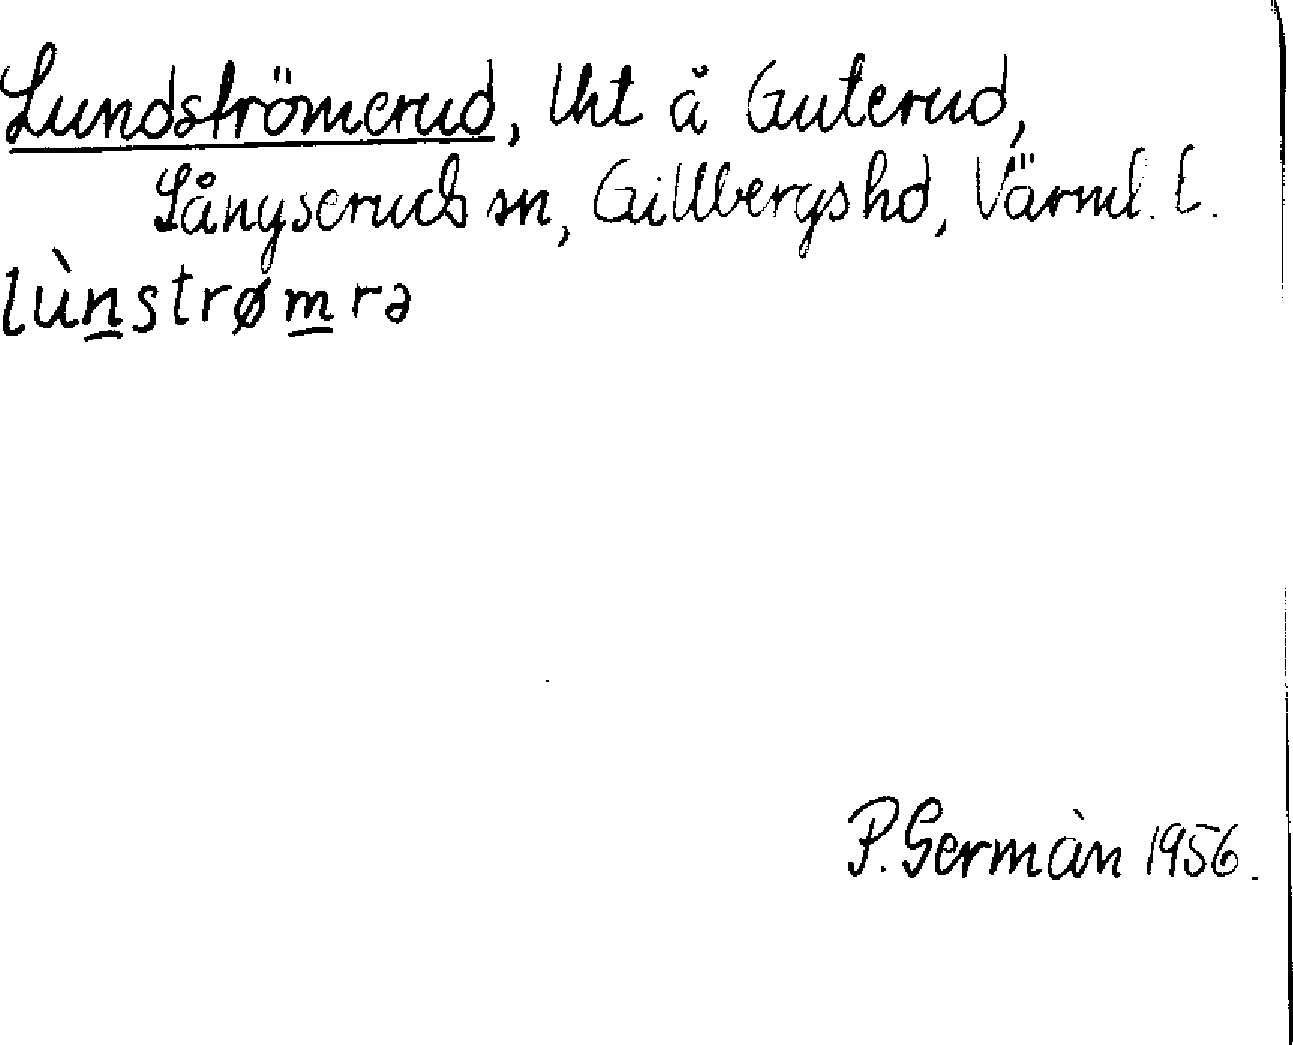 Lundströmerud, lht å Guterud,
Långseruds sn, Gillbergs hd, Värml. l.
lùn̲strøm̲rə
P. Germàn 1956.